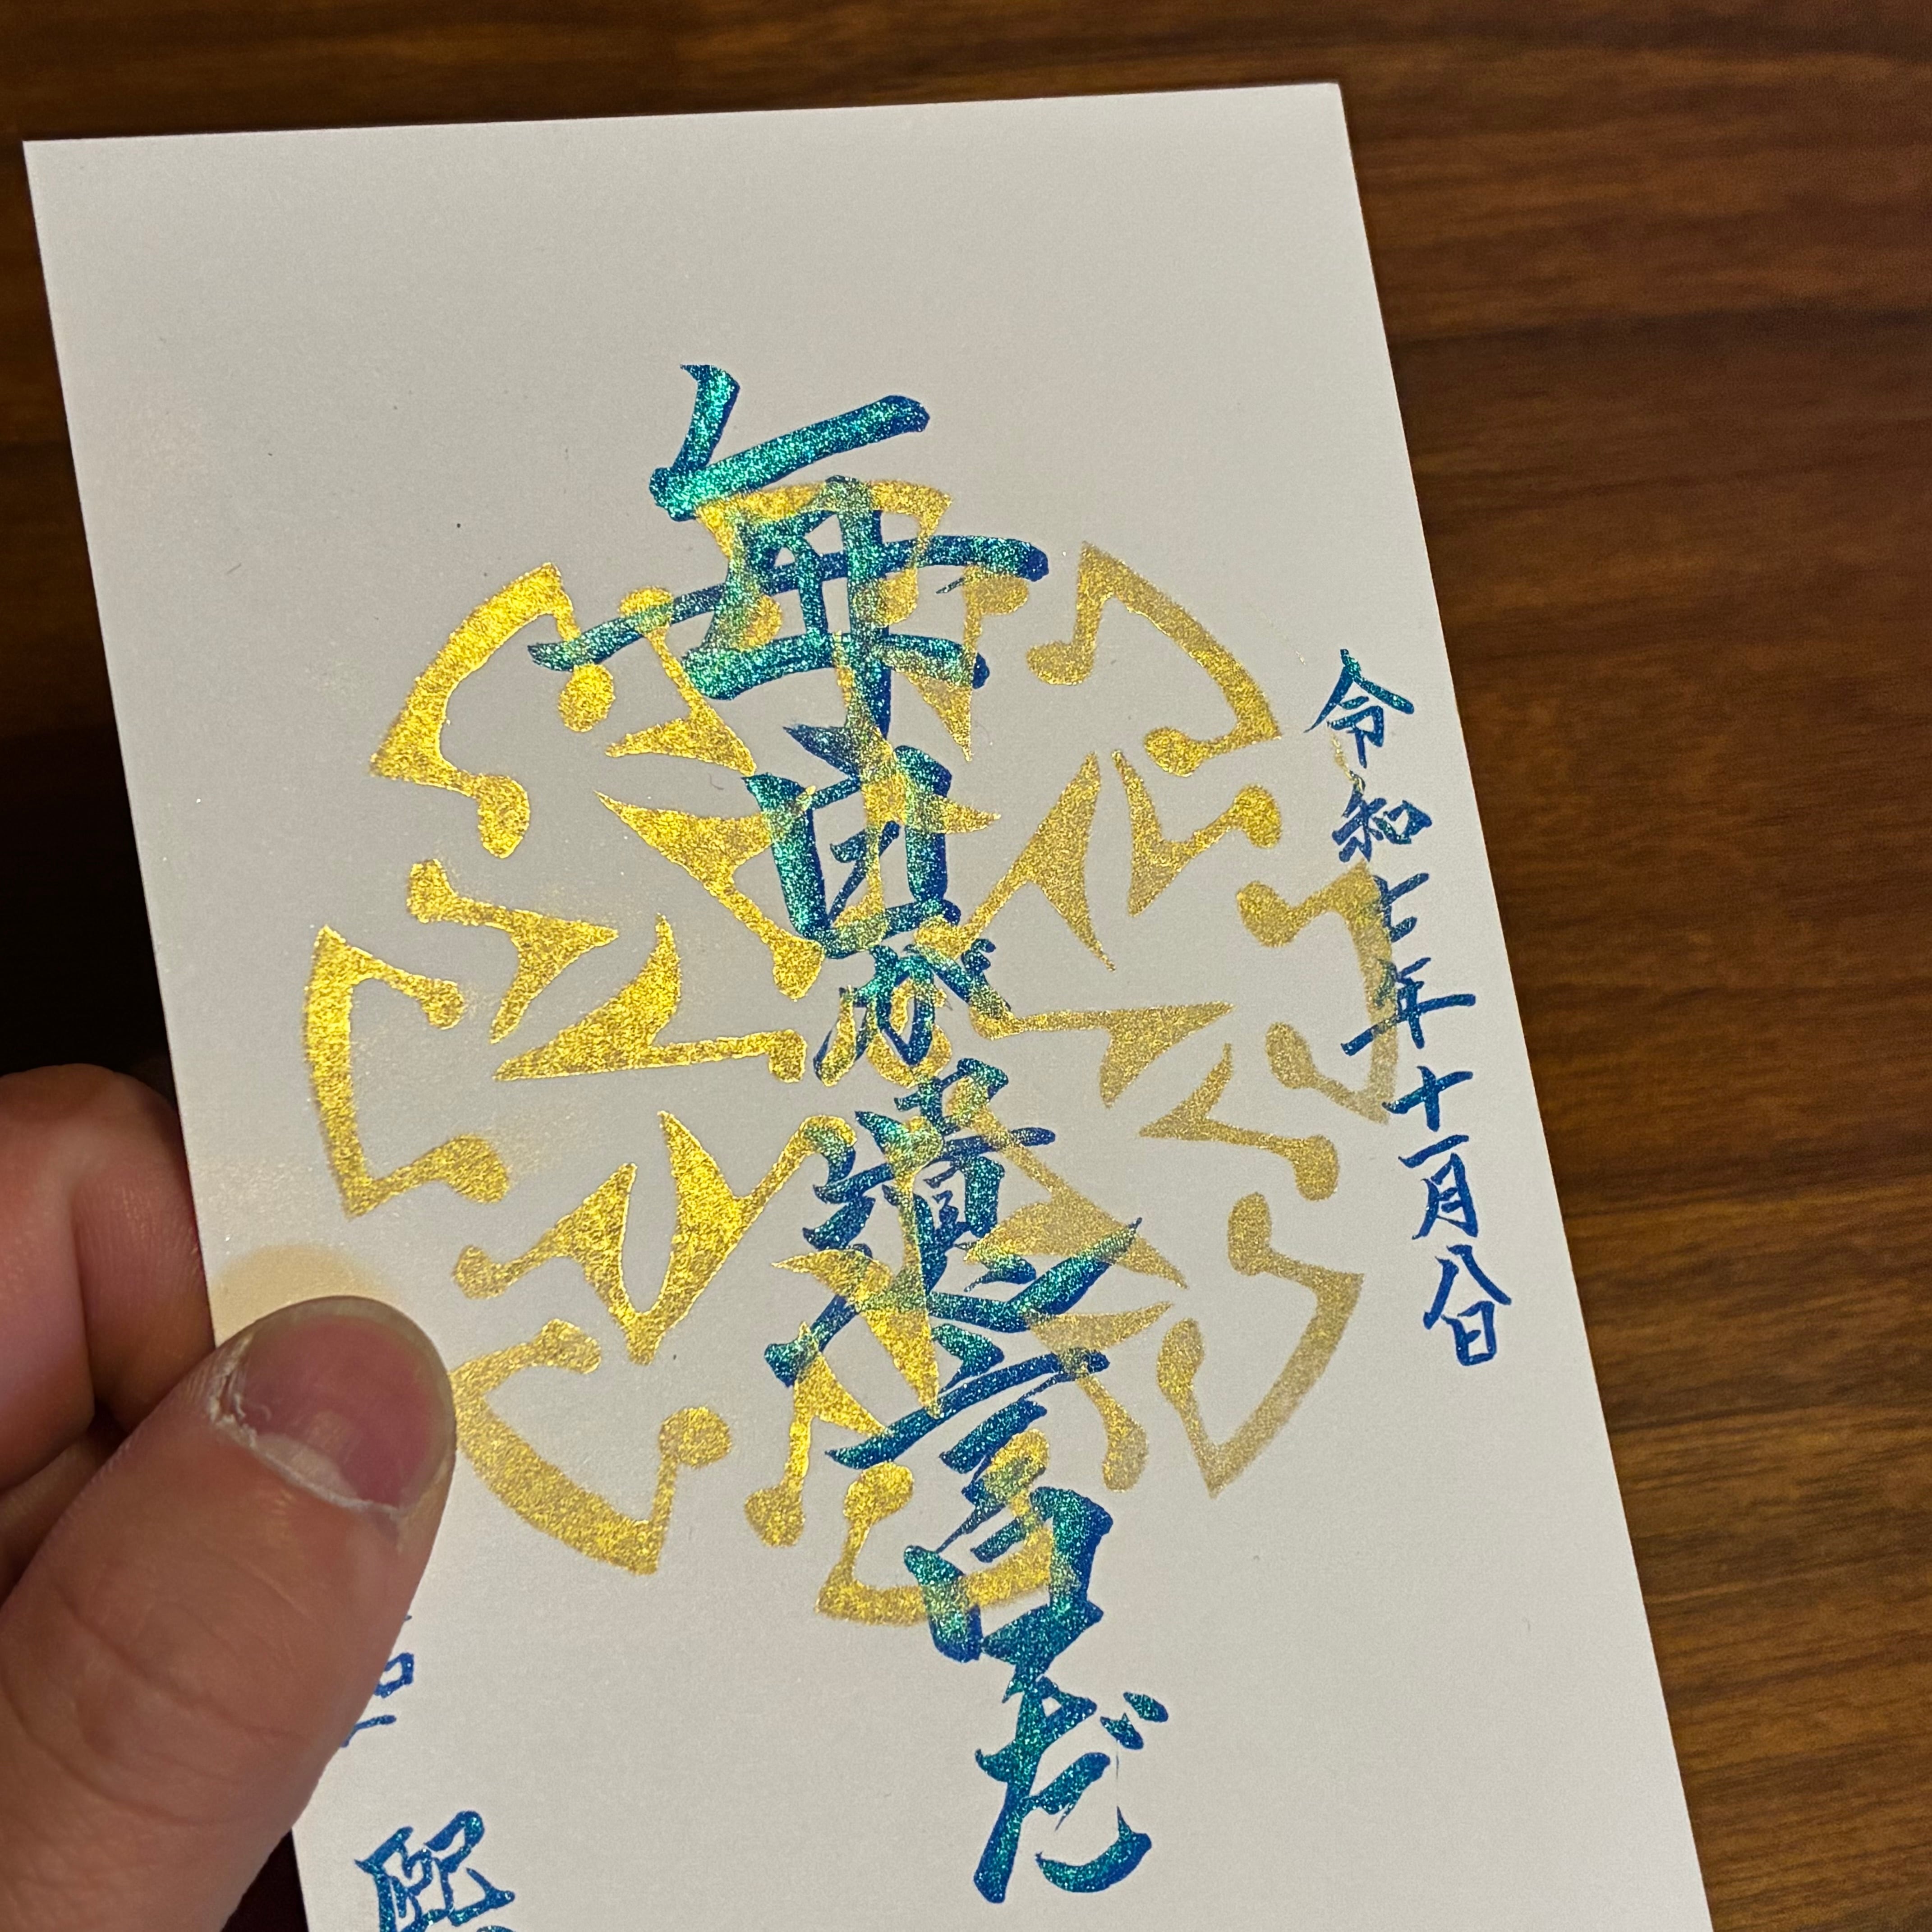 令和七年十一月八日
毎日が遺言だ
熙